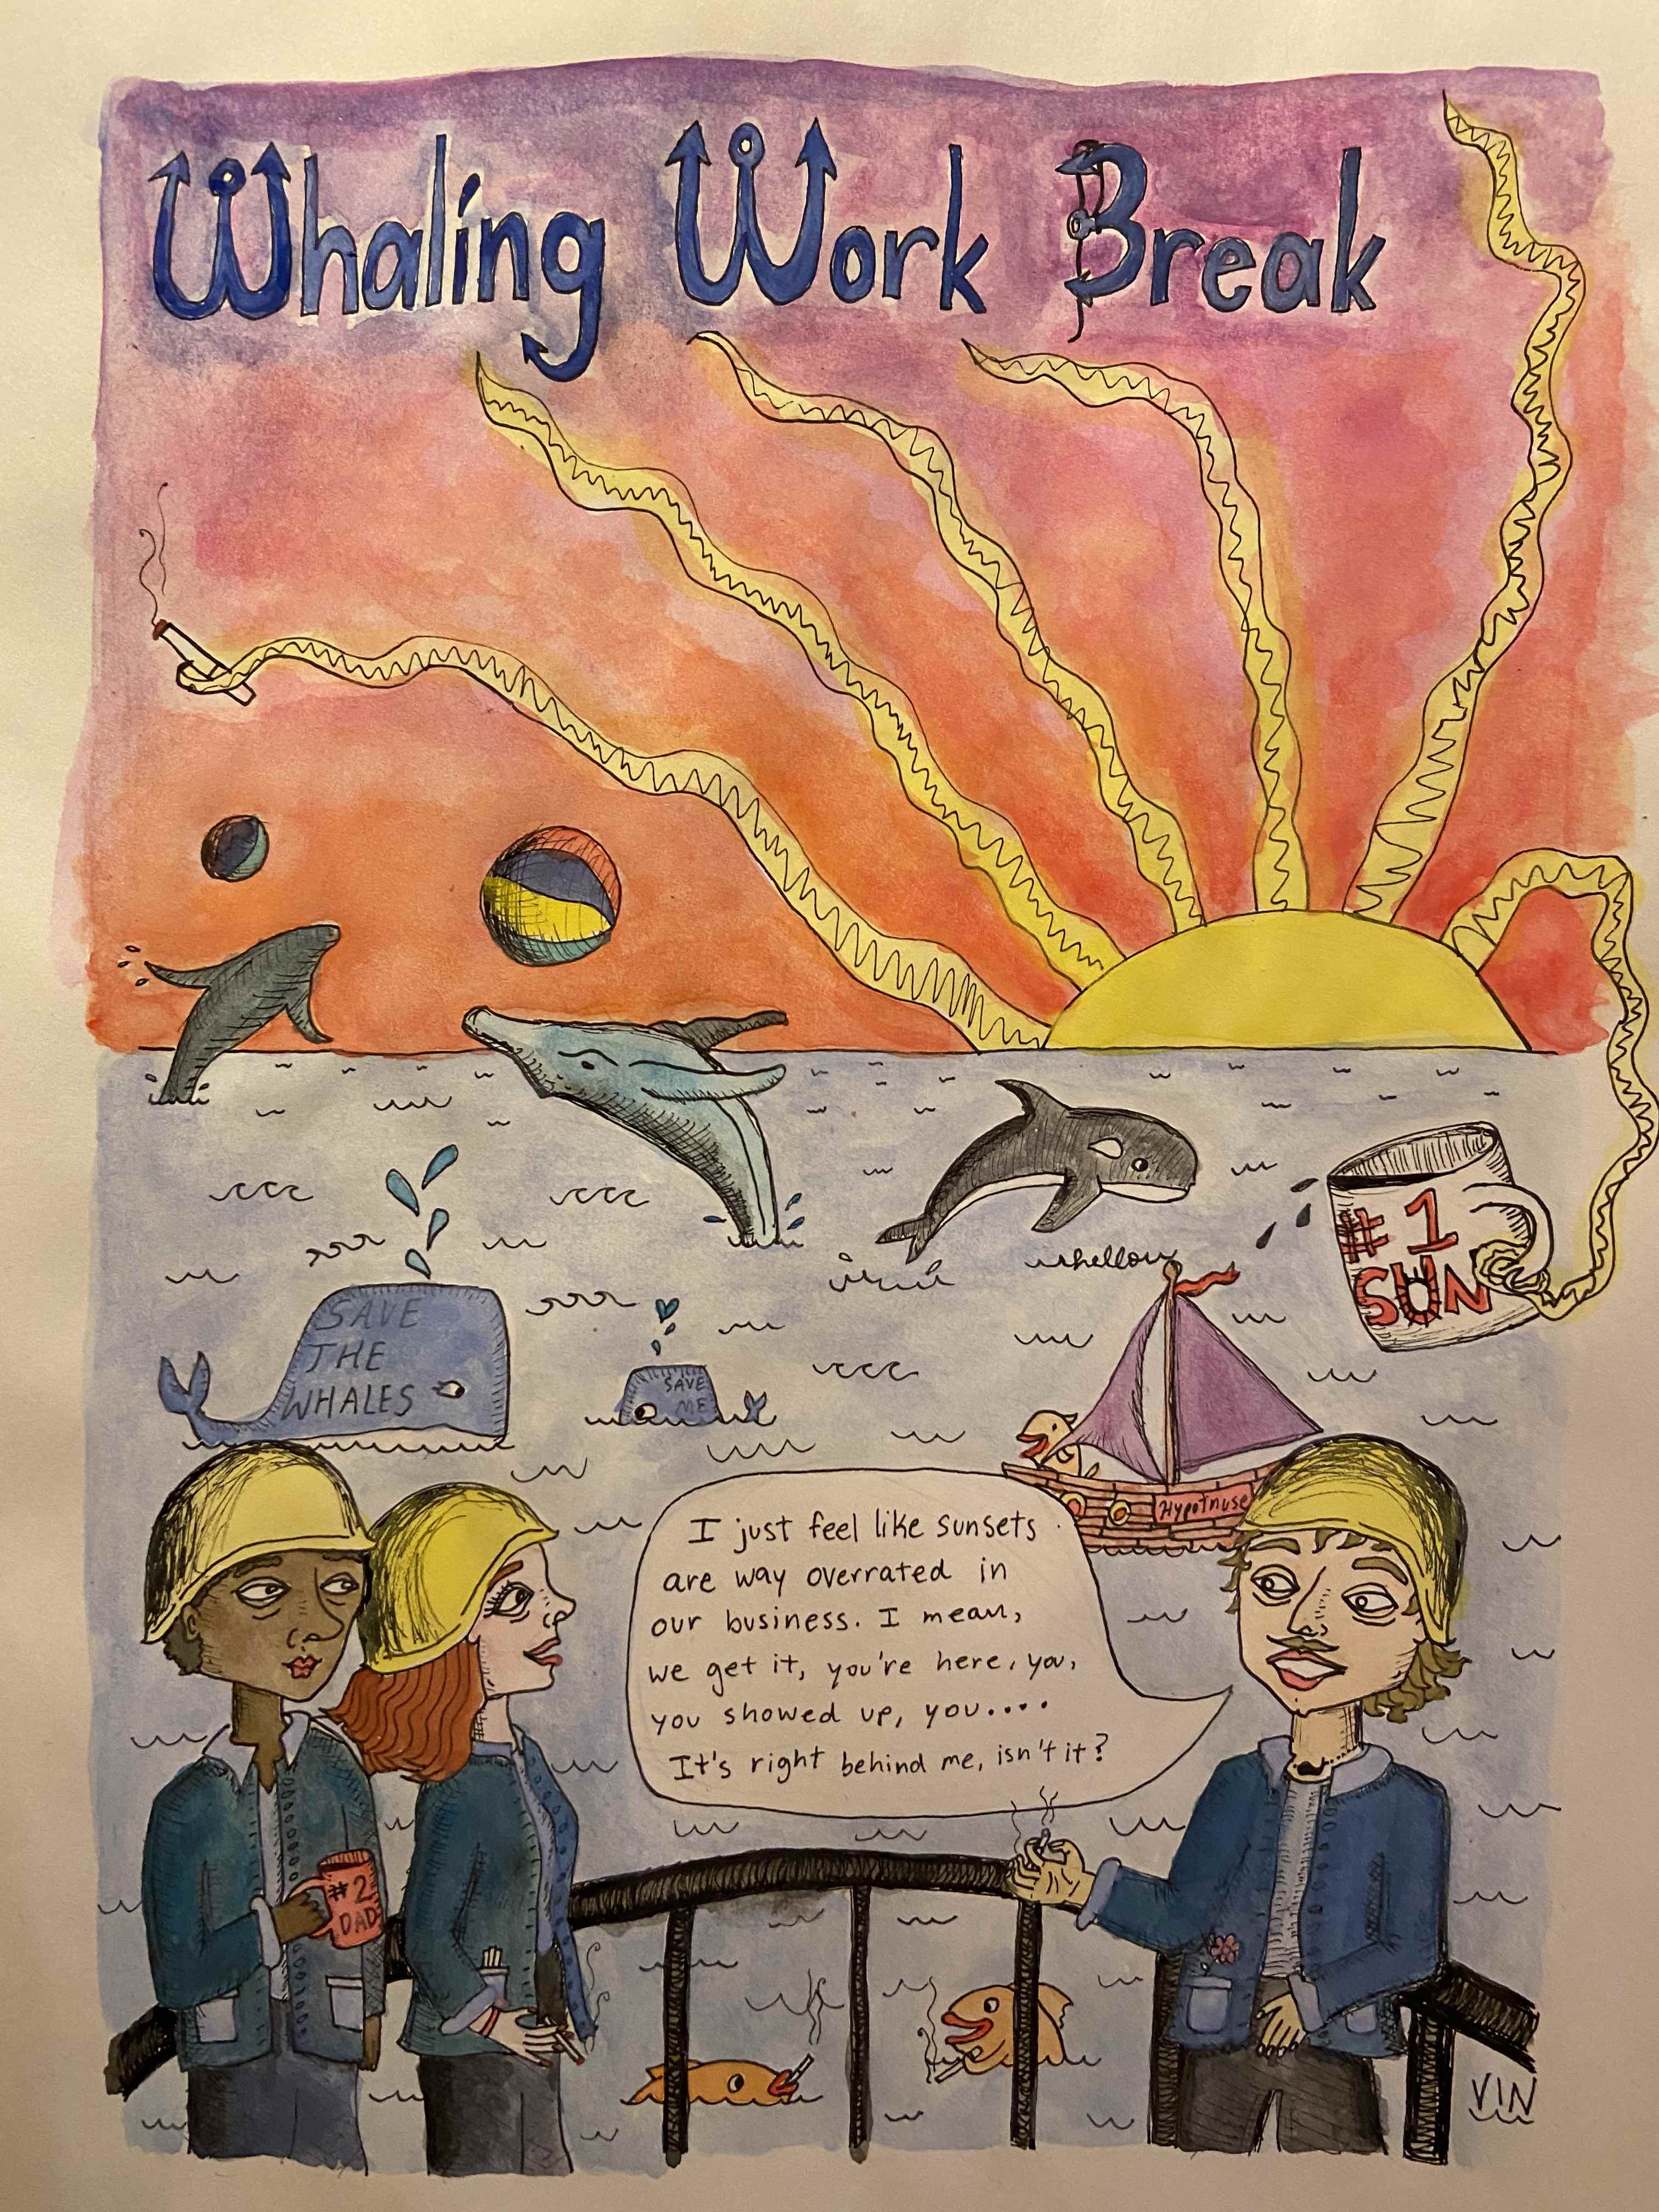 Whaling Work Break
#1
SUN
hellow
SAVE
THE
WHALES
SAVE
ME
Hypotnuse
I just feel like sunsets
are way overrated in
our business. I mean,
we get it, you're here, you,
you showed up, you....
It's right behind me, isn't it?
#2
DAD
VIN